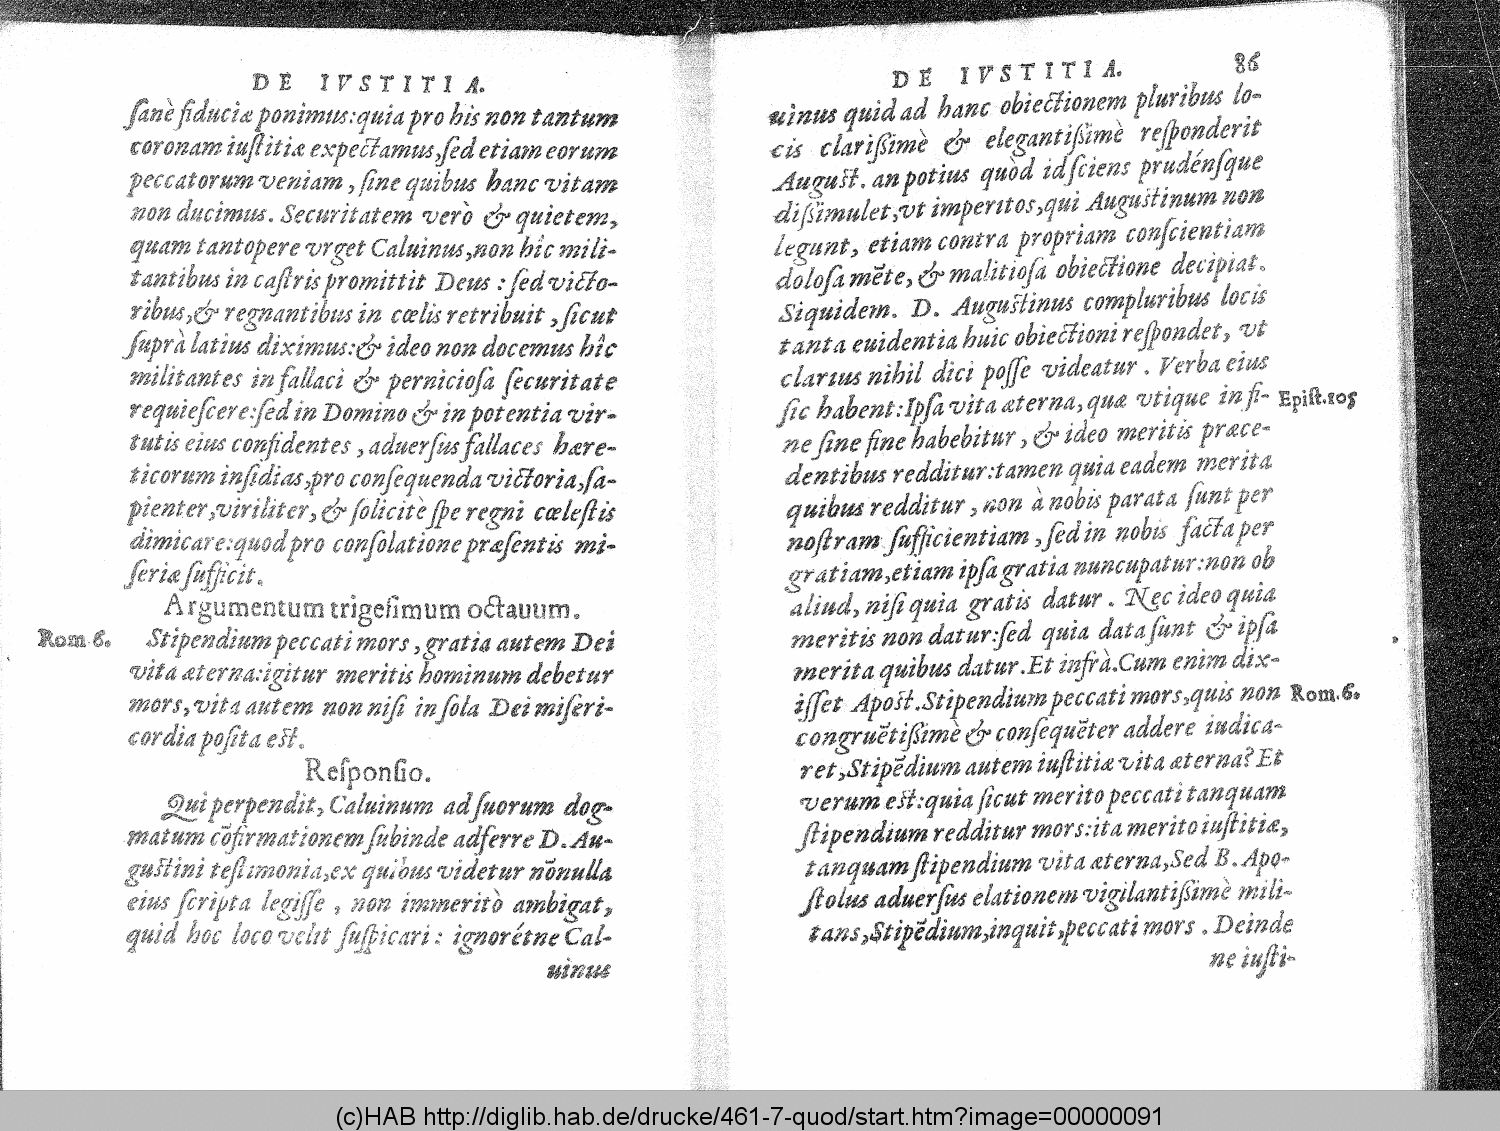 DE IVSTITIA.
ſanè fiduciæ ponimus: quia pro his non tantum
coronam iuſtitiæ expectamus, ſed etiam eorum
peccatorum veniam, ſine quibus hanc vitam
non ducimus. Securitatem verò & quietem,
quam tantopere vrget Caluinus, non hîc mili-
tantibus in caſtris promittit Deus: ſed victo-
ribus, & regnantibus in cœlis retribuit, ſicut
ſuprà latius diximus: & ideo non docemus hîc
militantes in fallaci & pernicioſa ſecuritate
requieſcere: ſed in Domino & in potentia vir-
tutis eius confidentes, aduerſus fallaces hære-
ticorum inſidias, pro conſequenda victoria, ſa-
pienter, viriliter, & ſolicitè ſpe regni cœleſtis
dimicare: quod pro conſolatione præſentis mi-
ſeriæ ſufficit.
Argumentum trigeſimum octauum.
Rom. 6. Stipendium peccati mors, gratia autem Dei
vita æterna: igitur meritis hominum debetur
mors, vita autem non niſi in ſola Dei miſeri-
cordia poſita eſt.
Reſponſio.
Qui perpendit, Caluinum ad ſuorum dog-
matum cõfirmationem ſubinde adferre D. Au-
guſtini teſtimonia, ex quibus videtur nõnulla
eius ſcripta legiſſe, non immeritò ambigat,
quid hoc loco velit ſuſpicari: ignorétne Cal-
uinus
DE IVSTITIA. 86
uinus quid ad hanc obiectionem pluribus lo-
cis clariſſimè & elegantiſſimè reſponderit
Auguſt. an potius quòd id ſciens prudénſque
diſſimulet, vt imperitos, qui Auguſtinum non
legunt, etiam contra propriam conſcientiam
doloſa mẽte, & malitioſa obiectione decipiat.
Siquidem. D. Auguſtinus compluribus locis
tanta euidentia huic obiectioni reſpondet, vt
clarius nihil dici poſſe videatur. Verba eius
ſic habent: Ipſa vita æterna, quæ vtique in fi- Epiſt. 105
ne ſine fine habebitur, & ideo meritis præce-
dentibus redditur: tamen quia eadem merita
quibus redditur, non à nobis parata ſunt per
noſtram ſufficientiam, ſed in nobis facta per
gratiam, etiam ipſa gratia nuncupatur: non ob
aliud, niſi quia gratis datur. Nec ideo quia
meritis non datur: ſed quia data ſunt & ipſa
merita quibus datur. Et infrà. Cum enim dix-
iſſet Apoſt. Stipendium peccati mors, quis non Rom. 6.
congruẽtiſſimè & conſequẽter addere iudica-
ret, Stipẽdium autem iuſtitiæ vita æterna? Et
verum eſt: quia ſicut merito peccati tanquam
ſtipendium redditur mors: ita merito iuſtitiæ,
tanquam ſtipendium vita æterna, Sed B. Apo-
ſtolus aduerſus elationem vigilantiſſimè mili-
tans, Stipẽdium, inquit, peccati mors. Deinde
ne iuſti-
(c)HAB http://diglib.hab.de/drucke/461-7-quod/start.htm?image=00000091